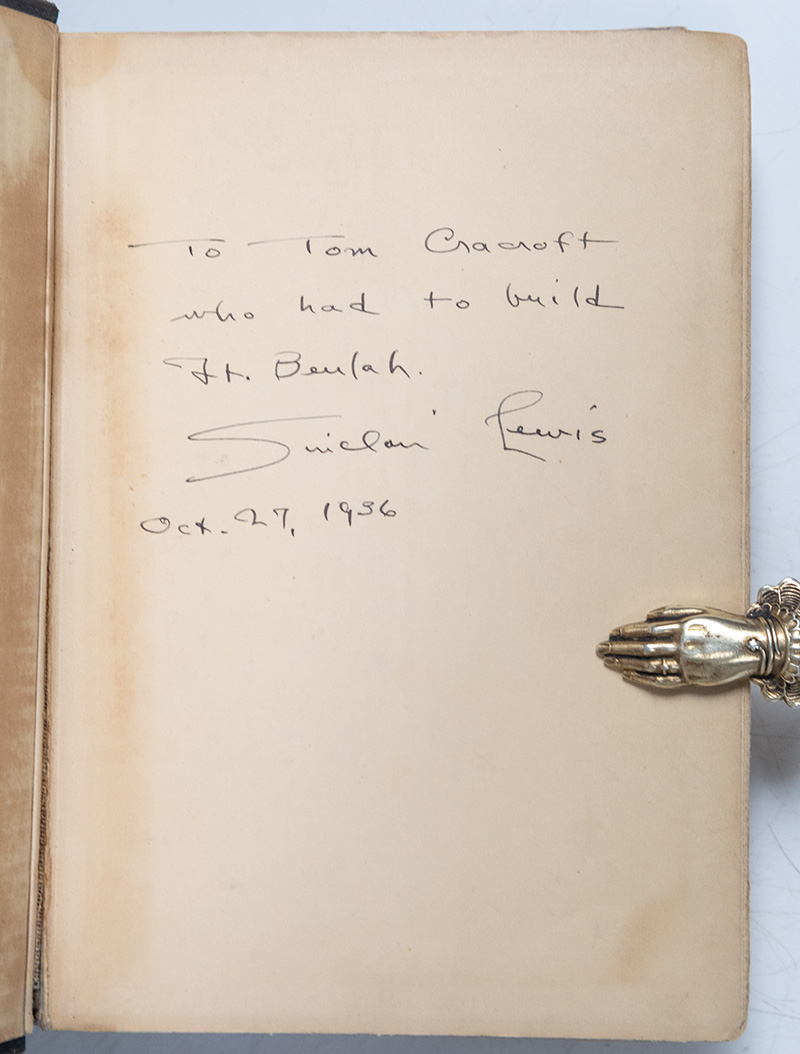 To Tom Cracroft
who had to build
Ft. Beulah.
Sinclair Lewis
Oct. 27, 1936